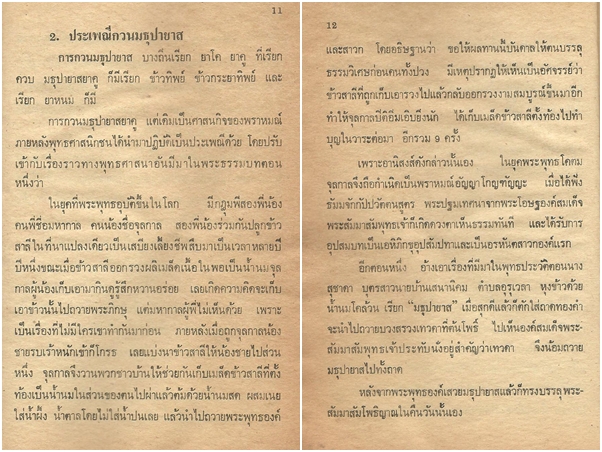 11
2. ประเพณีกวนมธุปายาส
การกวนมธุปายาส บางถิ่นเรียก ยาโค ยาคู ที่เรียก
ควบ มธุปายาสยาคู ก็มีเรียก ข้าวทิพย์ ข้าวกระยาทิพย์ และ
เรียก ยาหนม ก็มี
การกวนมธุปายาสยาคู แต่เดิมเป็นศาสนกิจของพราหมณ์
ภายหลังพุทธศาสนิกชนได้นำมาปฏิบัติเป็นประเพณีด้วย โดยปรับ
เข้ากับเรื่องราวทางพุทธศาสนาอันมีมาในพระธรรมบทตอน
หนึ่งว่า
ในยุคที่พระพุทธอุบัติขึ้นในโลก มีกฎุมพีสองพี่น้อง
คนพี่ชื่อมหากาล คนน้องชื่อจุลกาล สองพี่น้องร่วมกันปลูกข้าว
สาลีในที่นาแปลงเดียวเป็นเสบียงเลี้ยงชีพสืบมาเป็นเวลาหลายปี
ปีหนึ่งขณะเมื่อข้าวสาลีออกรวงผลิเมล็ดเนื้อในพอเป็นน้ำนมจุล
กาลผู้น้องเก็บเอามากินดูรู้สึกหวานอร่อย เลยเกิดความคิดจะเก็บ
เอาข้าวนั้นไปถวายพระภิกษุ แต่มหากาลผู้พี่ไม่เห็นด้วย เพราะ
เป็นเรื่องที่ไม่มีใครเขาทำกันมาก่อน ภายหลังเมื่อถูกจุลกาลน้อง
ชายรบเร้าหนักเข้าก็โกรธ เลยแบ่งนาข้าวสาลีให้น้องชายไปส่วน
หนึ่ง จุลกาลจึงวานพวกชาวบ้านให้ช่วยกันเก็บเมล็ดข้าวสาลีที่ตั้ง
ท้องเป็นน้ำนมในส่วนของตนไปผ่าแล้วต้มด้วยน้ำนมสด ผสมเนย
ใส่น้ำผึ้ง น้ำตาลโดยไม่ใส่น้ำปนเลย แล้วนำไปถวายพระพุทธองค์
12
และสาวก โดยอธิษฐานว่า ขอให้ผลทานนี้บันดาลให้ตนบรรลุ
ธรรมวิเศษก่อนคนทั้งปวง มีเหตุปรากฏให้เห็นเป็นอัศจรรย์ว่า
ข้าวสาลีที่ถูกเก็บเอารวงไปแล้วกลับออกรวงงามสมบูรณ์ขึ้นมาอีก
ทำให้จุลกาลปีติอิ่มเอิบยิ่งนัก ได้เก็บเมล็ดข้าวสาลีตั้งท้องไปทำ
บุญในวาระต่อมา อีกรวม 9 ครั้ง
เพราะอานิสงส์ดังกล่าวนั้นเอง ในยุคพระพุทธโคดม
จุลกาลจึงถือกำเนิดเป็นพราหมณ์อัญญาโกญฑัญญะ เมื่อได้ฟัง
ธัมมจักกัปปวัตตนสูตร พระปฐมเทศนาจากพระโอษฐองค์สมเด็จ
พระสัมมาสัมพุทธเจ้าก็เกิดดวงตาเห็นธรรมทันที และได้รับการ
อุปสมบทเป็นเอหิภิกขุอุปสัมปทาและเป็นอรหันตสาวกองค์แรก
อีกตอนหนึ่ง อ้างเอาเรื่องที่มีมาในพุทธประวัติตอนนาง
สุชาดา บุตรสาวนายบ้านเสนานิคม ตำบลอุรุเวลา หุงข้าวด้วย
น้ำนมโคล้วน เรียก "มธุปายาส" เมื่อสุกดีแล้วก็ตักใส่ถาดทองคำ
จะนำไปถวายบวงสรวงเทวดาที่ต้นโพธิ์ ไปเห็นองค์สมเด็จพระ-
สัมมาสัมพุทธเจ้าประทับนั่งอยู่สำคัญว่าเทวดา จึงน้อมถวาย
มธุปายาสไปทั้งถาด
หลังจากพระพุทธองค์เสวยมธุปายาสแล้วก็ทรงบรรลุพระ-
สัมมาสัมโพธิญาณในคืนวันนั้นเอง